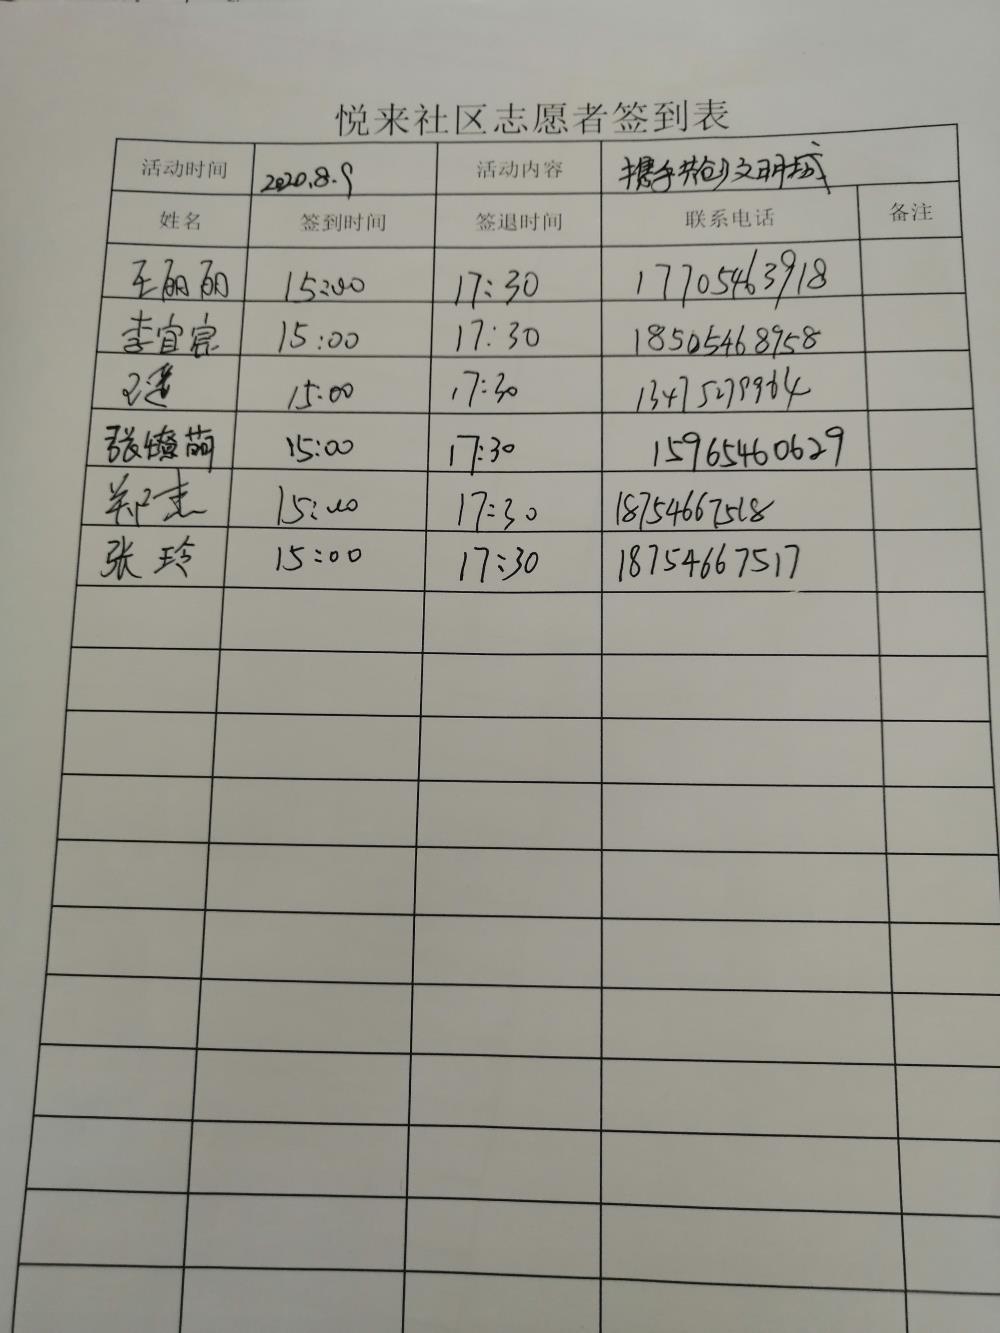 悦来社区志愿者签到表
活动时间 2020.8.9 活动内容 携手共创文明城
姓名 签到时间 签退时间 联系电话 备注
王丽丽 15:00 17:30 17705463918
李宜宸 15:00 17:30 18505468958
王 15:00 17:30 13475279964
张燎萌 15:00 17:30 15965460629
郑杰 15:00 17:30 18754667518
张玲 15:00 17:30 18754667517